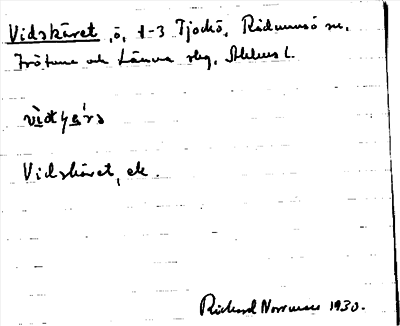 Vidskäret, ö, 1-3 Tjockö, Rådmansö sn.
Frötuna och Länna slg, Sthlms l.
Vidskäret, ek.
Richard Norrman 1930.